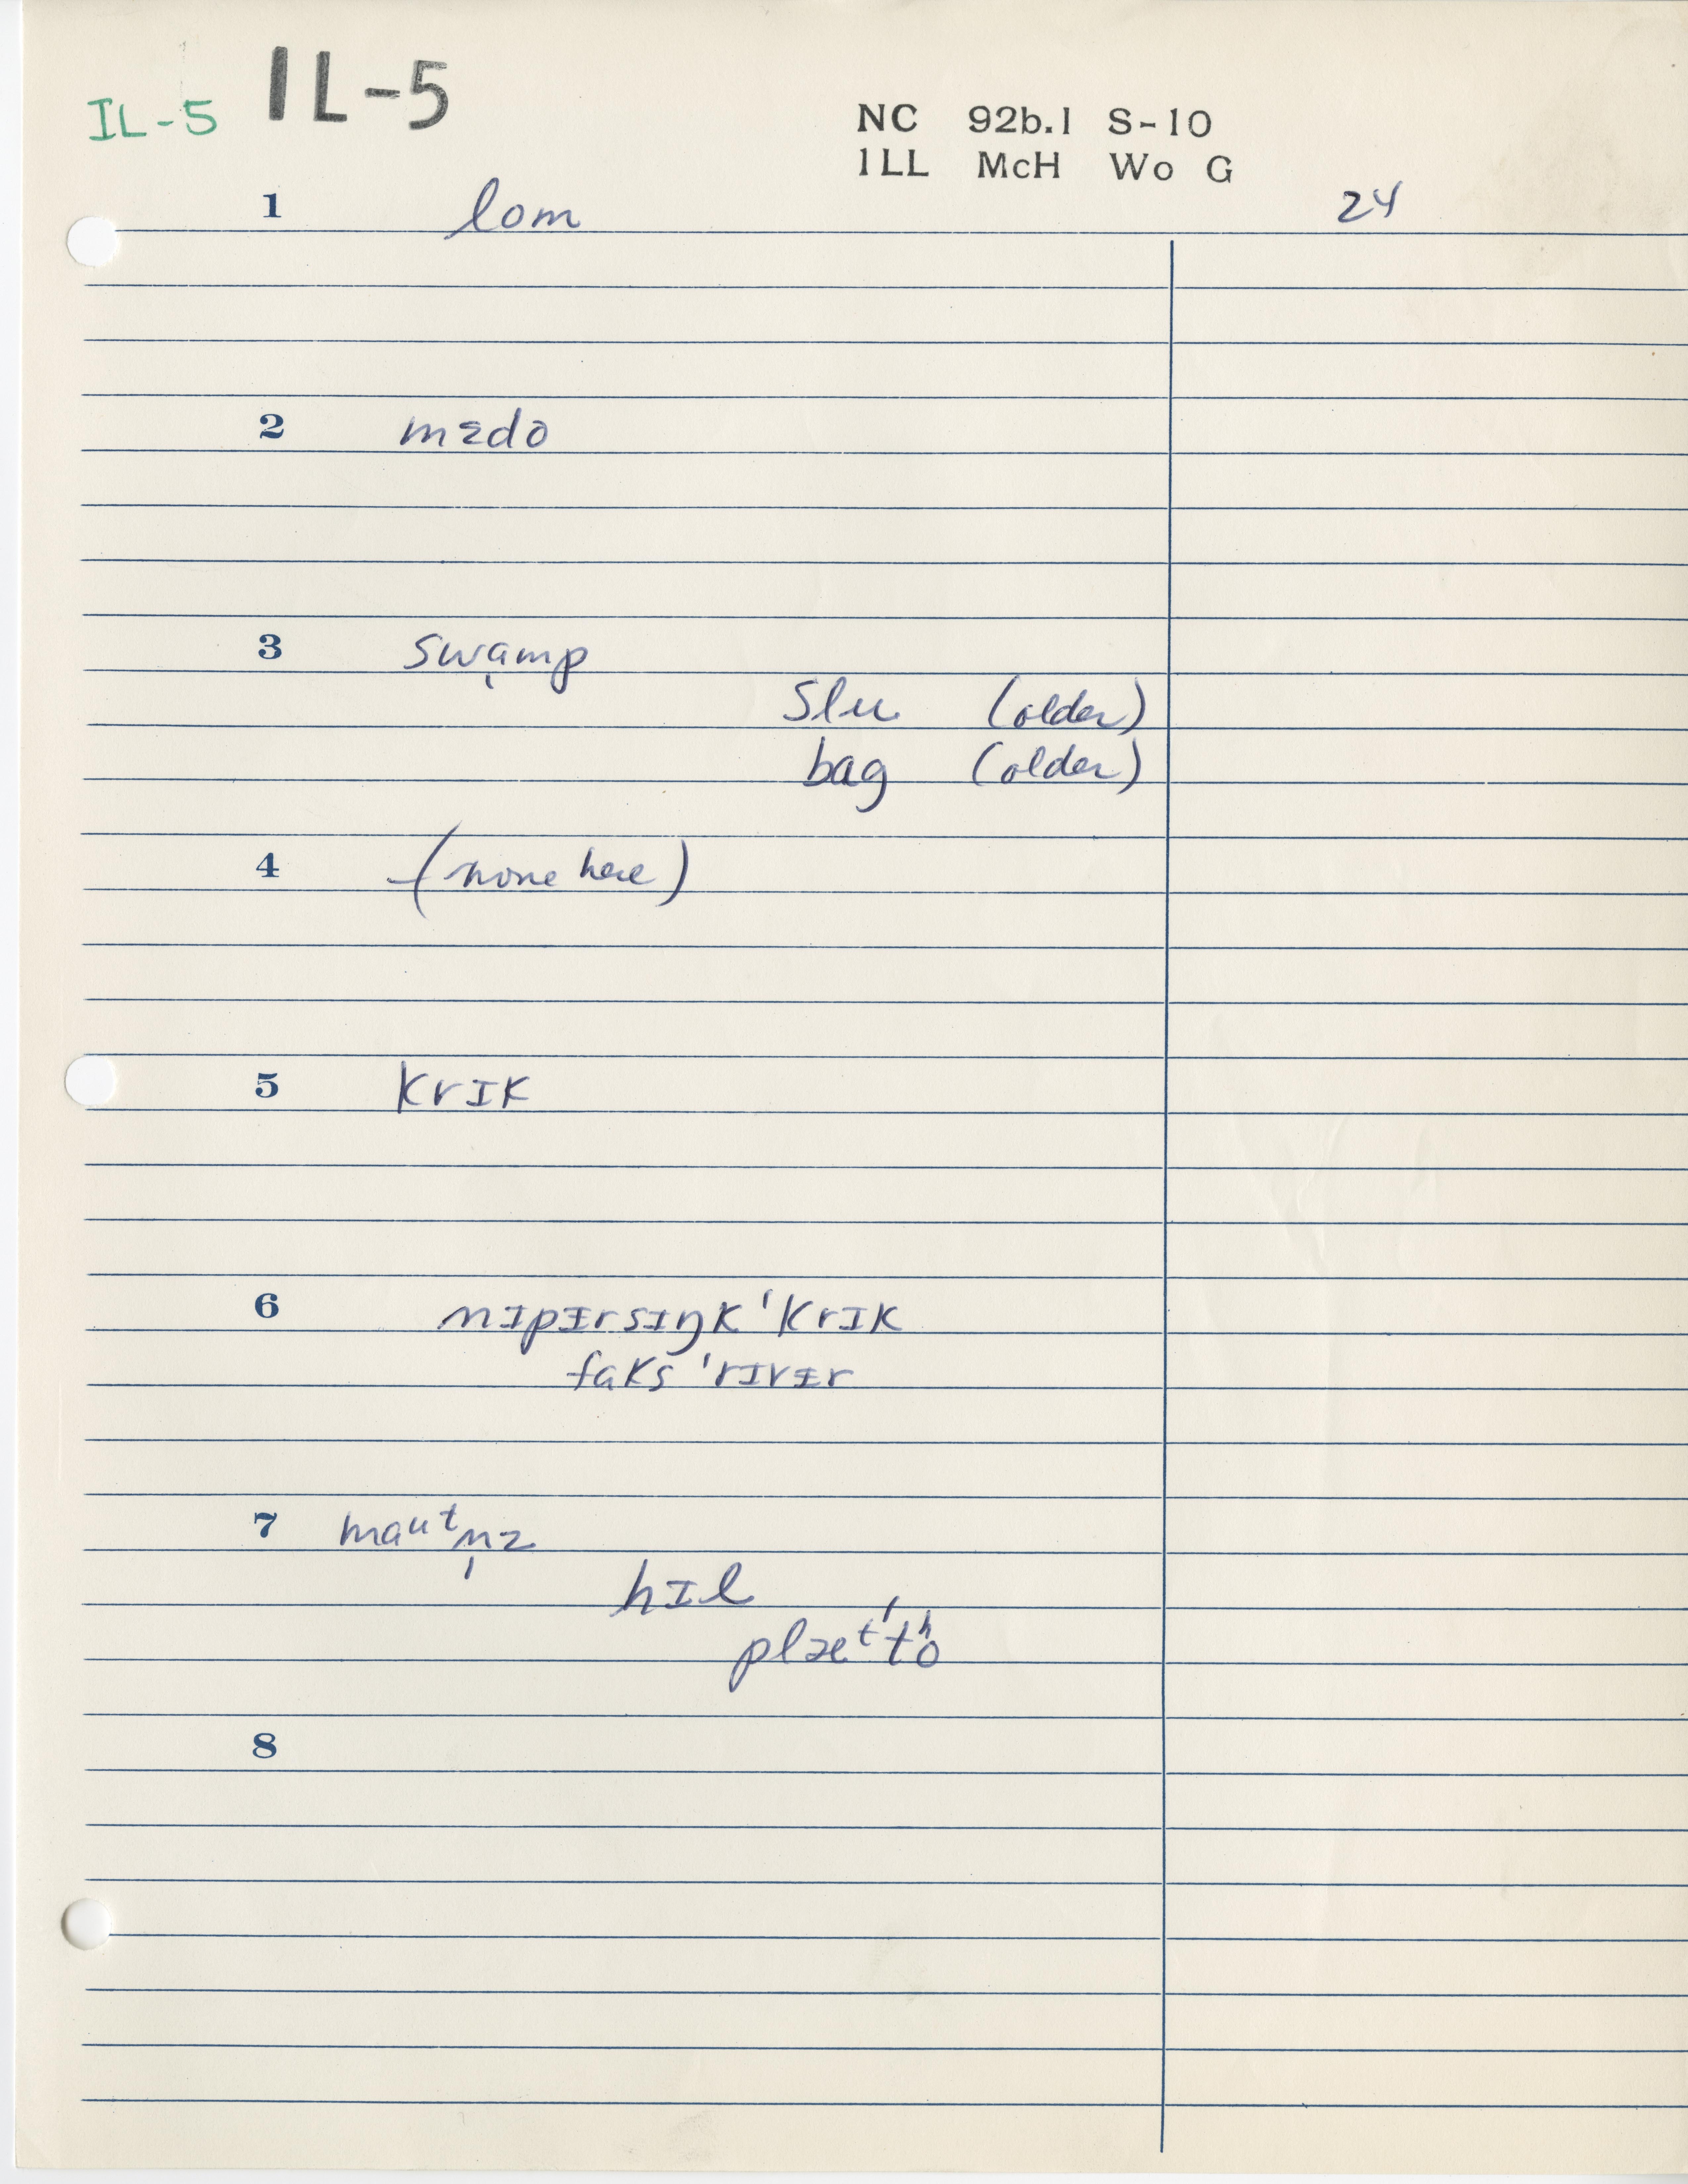 IL-5 IL-5
NC 92b.1 S-10
ILL McH Wo G
24
1 lom
2 mɛdo
3 swɑ̩mp
slu (older)
bag (older)
4 –(none here)
5 krɪk
6 nɪpɪrsɪŋk 'krɪk
faks 'rɪvɪr
7 mauᵗn̩z
hɪl
plæᵗ'tʰo
8